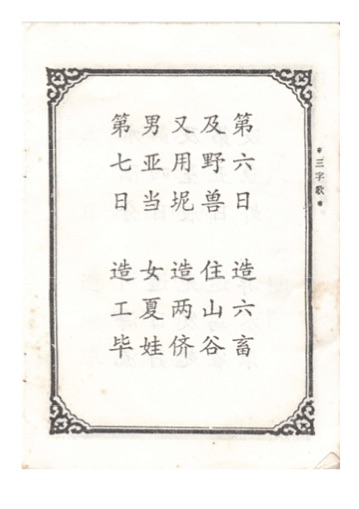 *三字歌*
第六日 造六畜
及野兽 住山谷
又用坭 造两侪
男亚当 女夏娃
第七日 造工毕